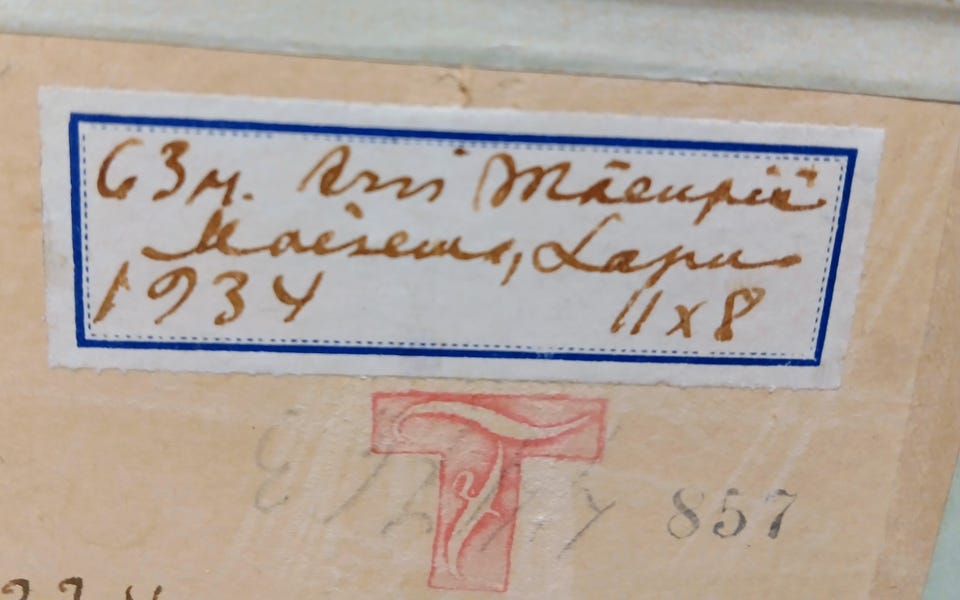 63 M. Arvi Mäenpää
Maisema, Lapua
1934 11x8
T
857